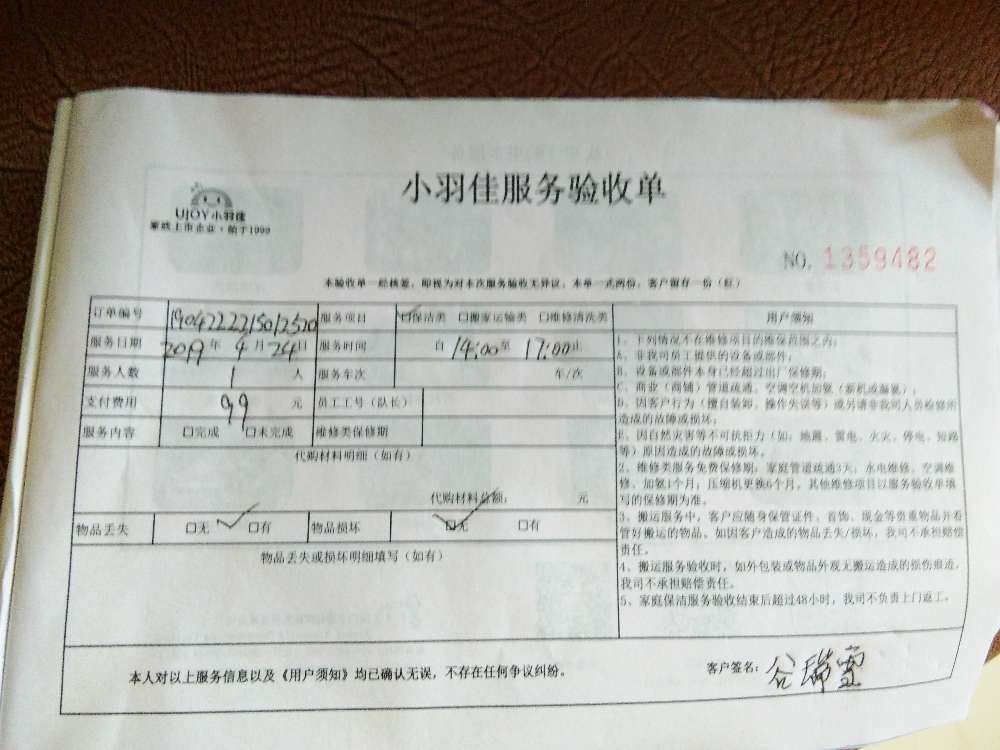 小羽佳服务验收单
UJOY小羽佳
家政上市企业·始于1999
NO. 1359482
本验收单一经核签，即视为对本次服务验收无异议，本单一式两份，客户留存一份（红）
订单编号 1904222215012520 服务项目 ☑保洁类 □搬家运输类 □维修清洗类
服务日期 2019年4月24日 服务时间 自14:00至17:00止
服务人数 1人 服务车次 车/次
支付费用 99元 员工工号（队长）
服务内容 □完成 □未完成 维修类保修期
代购材料明细（如有）
代购材料总额： 元
物品丢失 □无 ✓ □有 物品损坏 ☑无 □有
物品丢失或损坏明细填写（如有）
用户须知
1、下列情况不在维修项目的维保范围之内：
A、非我司员工提供的设备或部件；
B、设备或部件本身已经超过出厂保修期；
C、商业（商铺）管道疏通、空调空机加氨（新机或漏氨）；
D、因客户行为（擅自装卸、操作失误等）或另请非我司人员检修所
造成的故障或损坏；
E、因自然灾害等不可抗拒力（如：地震、雷电、火灾、停电、短路
等）原因造成的故障或损坏。
2、维修类服务免费保修期：家庭管道疏通3天；水电维修、空调维
修、加氨1个月；压缩机更换6个月，其他维修项目以服务验收单填
写的保修期为准。
3、搬运服务中，客户应随身保管证件、首饰、现金等贵重物品并看
管好搬运的物品。如因客户造成的物品丢失/损坏，我司不承担赔偿
责任。
4、搬运服务验收时，如外包装或物品外观无搬运造成的损伤痕迹，
我司不承担赔偿责任。
5、家庭保洁服务验收结束后超过48小时，我司不负责上门返工。
本人对以上服务信息以及《用户须知》均已确认无误，不存在任何争议纠纷。
客户签名：谷瑞霊